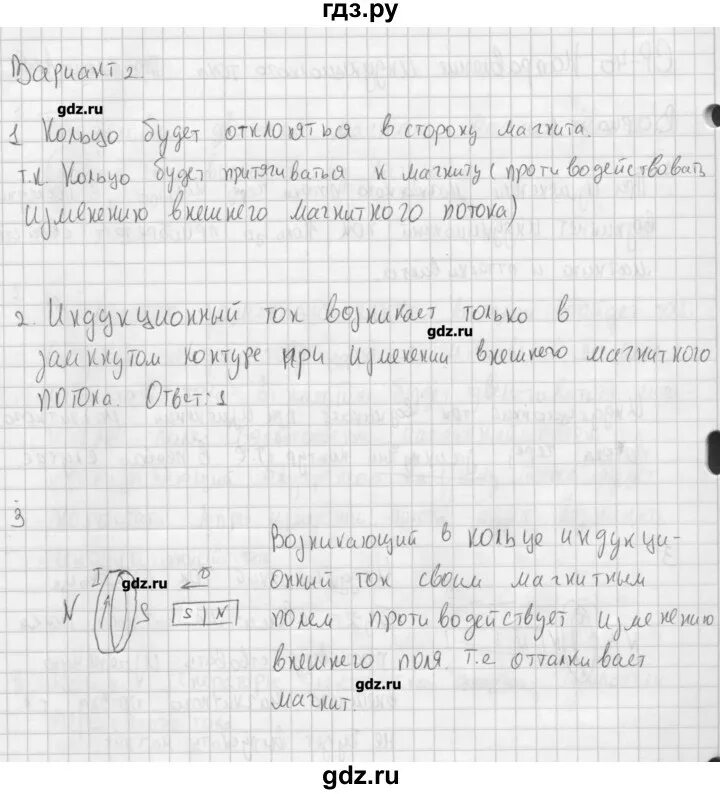 гдз.ру
Вариант 2
gdz.ru
1 Кольцо будет отклоняться в сторону магнита.
т.к. Кольцо будет притягиваться к магниту (противодействовать
изменению внешнего магнитного потока)
2. Индукционный ток возникает только в
gdz.ru
замкнутом контуре при изменении внешнего магнитного
потока. Ответ: 1
3
I
gdz.ru
υ
N
S
S N
Возникающий в кольце индукци-
онный ток своим магнитным
полем противодействует изменению
внешнего поля. т.е отталкивает
gdz.ru
магнит.
gdz.ru